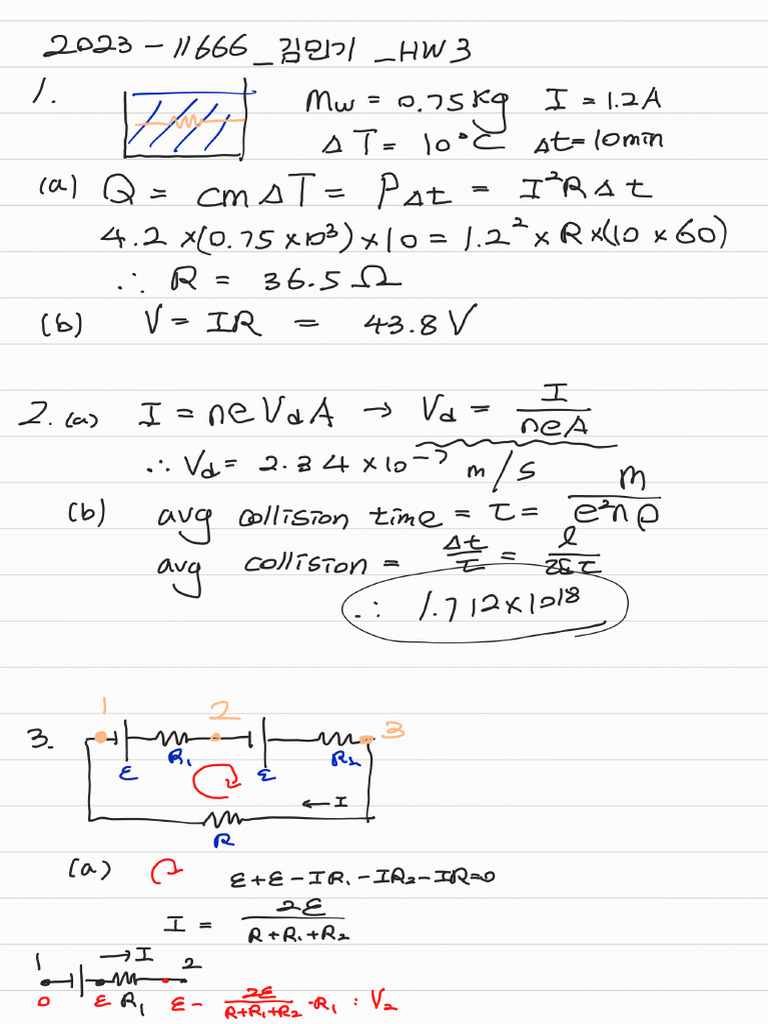 2023-11666_김민기_HW3
1. Mw = 0.75kg I = 1.2A
ΔT = 10°C Δt = 10min
(a) Q = cmΔT = PΔt = I²RΔt
4.2 × (0.75 × 10³) × 10 = 1.2² × R × (10 × 60)
∴ R = 36.5 Ω
(b) V = IR = 43.8 V
2. (a) I = neVdA → Vd = I/neA
∴ Vd = 2.34 × 10⁻⁷ m/s
(b) avg collision time = τ = m/e²nρ
avg collision = Δt/τ = l/
∴ 1.712×10¹⁸
3. 1 2 3
R₁ R₂
ε ε
← I
R
(a) ε+ε-IR₁-IR₂-IR=0
I = 2ε/R+R₁+R₂
1 → I 2
0 ε R₁ ε - 2ε/R+R₁+R₂ · R₁ : V₂